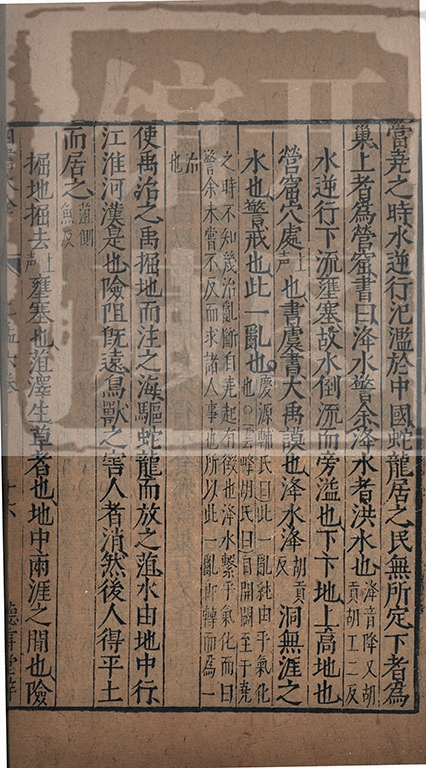 當堯之時水逆行氾濫於中國蛇龍居之民無所定下者爲
巢上者爲營窟書曰洚水警余洚水者洪水也洚音降又胡
貢胡工二反
水逆行下流壅塞故水倒流而旁溢也下下地上高地也
營窟穴處上聲也書虞書大禹謨也洚水洚胡貢反洞無涯之
水也警戒也此一亂也慶源輔氏曰此一亂純由乎氣化
也○雲峰胡氏曰自開闢至于堯
之時不知幾治亂斷自堯起有徵也洚水繫乎氣化而曰
警余未嘗不反而求諸人事也所以此一亂即轉而爲一
治
也
使禹治之禹掘地而注之海驅蛇龍而放之菹水由地中行
江淮河漢是也險阻旣遠鳥獸之害人者消然後人得平土
而居之菹側
魚反
掘地掘去上聲壅塞也菹澤生草者也地中兩涯之間也險